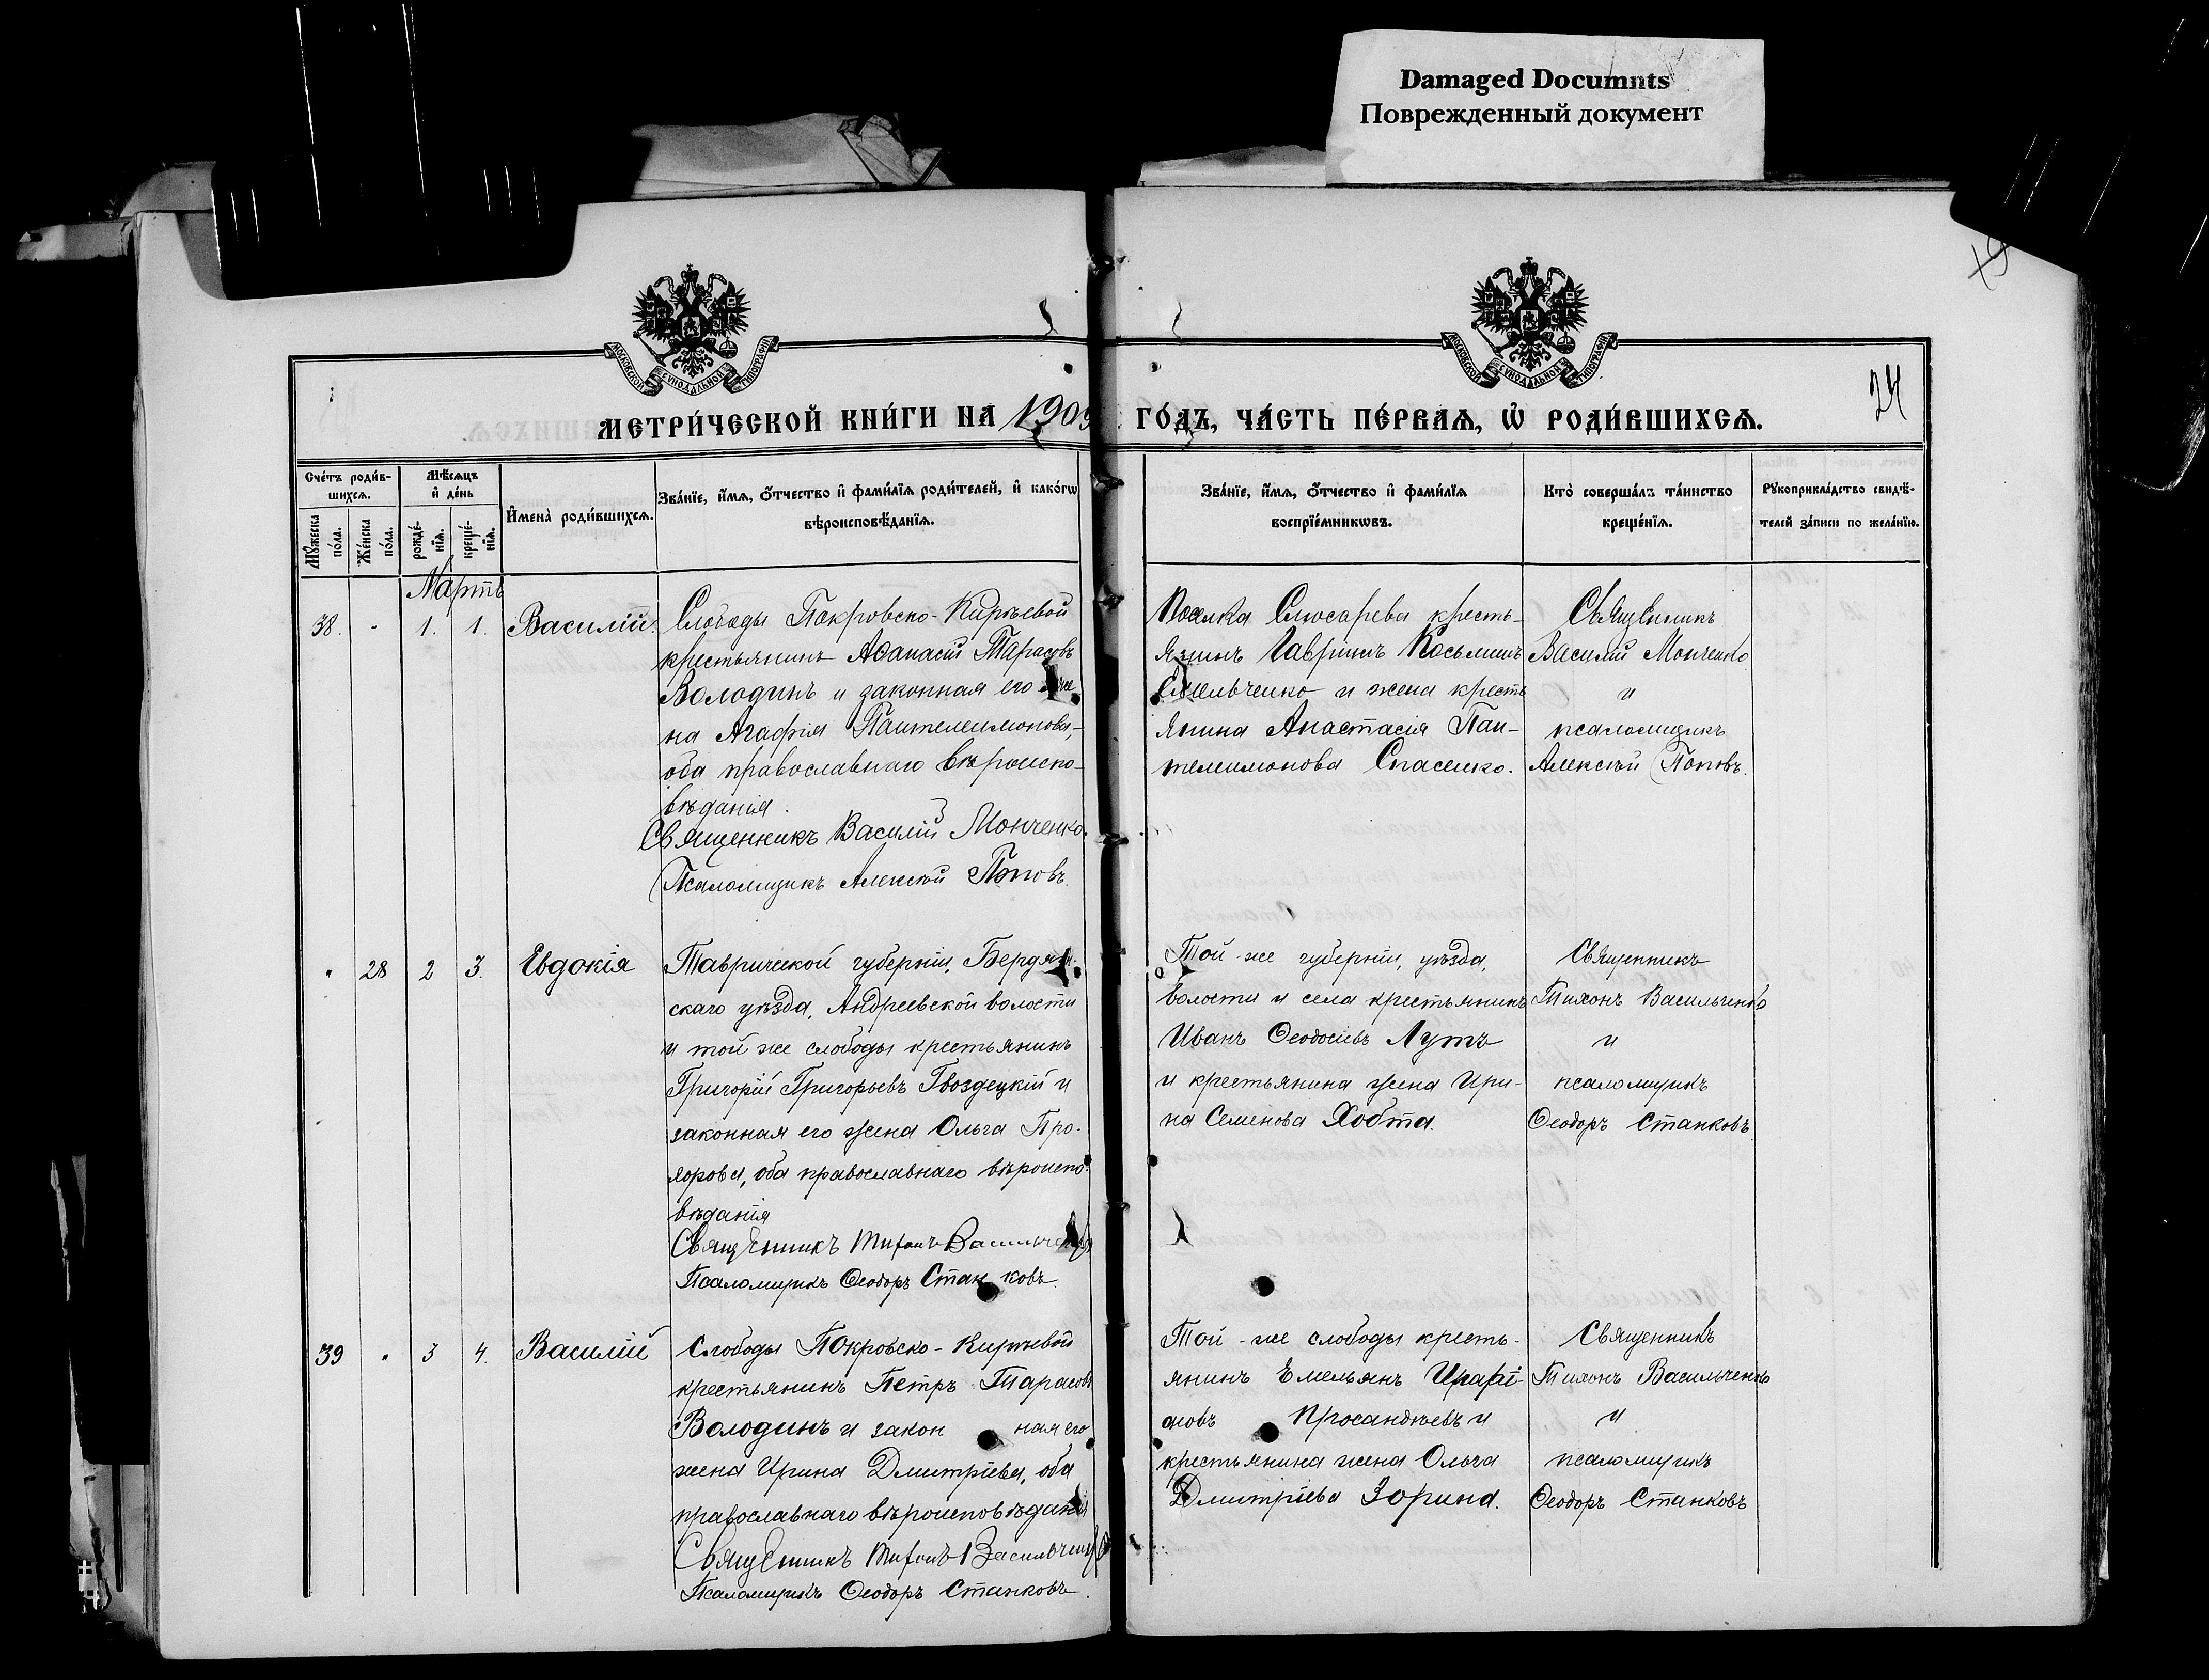 Damaged Documnts
Поврежденный документ
МОСКОВСКОЙ СѴНОДАЛЬНОЙ ТИПОГРАФІИ
МОСКОВСКОЙ СѴНОДАЛЬНОЙ ТИПОГРАФІИ
24
МЕТРИ́ЧЕСКОЙ КНИ́ГИ НА 1909 ГО́ДЪ, ЧА́СТЬ ПЕ́РВАѦ, Ѡ РОДИ́ВШИХСѦ.
Сче́тъ роди́в-
шихсѧ.
Мѣ́сѧцъ
и҆ де́нь
Мꙋ́жеска по́ла.
Же́нска по́ла.
рожде́-нїѧ.
креще́-нїѧ.
И҆мена̀ роди́вшихсѧ.
Зва́нїе, и҆́мѧ, ѻ҆́тчество и҆ фами́лїѧ роди́телей, и҆ како́гѡ
вѣроисповѣ́данїѧ.
Зва́нїе, и҆́мѧ, ѻ҆́тчество и҆ фами́лїѧ
воспрїе́мникѡвъ.
Кто̀ соверша́лъ та́инство
креще́нїѧ.
Рꙋкоприкла́дство свидѣ́-
телей за́писи по жела́нїю.
Мартъ
38. " 1. 1. Василій.
Слободы Покровско-Киръевой
крестьянинъ Аѳанасій Тарасовъ
Володинъ и законная его же
на Агафія Пантелеимонова,
оба православнаго вѣроиспо-
вѣданія.
Священникъ Василій Монченко.
Псаломщикъ Алексѣй Поповъ.
Поселка Слюсарева кресть-
янинъ Гавріилъ Косьминъ
Емельченко и жена кресть
янина Анастасія Пан-
телеимонова Спасенко.
Священникъ
Василій Монченко
и
псаломщикъ
Алексѣй Поповъ.
" 28 2 3. Евдокія
Таврической губерніи, Бердян-
скаго уѣзда, Андреевской волости
и той же слободы крестьянинъ
Григорій Григорьевъ Гвоздецкій и
законная его жена Ольга Про-
хорова, оба православнаго вѣроиспо-
вѣданія
Священникъ Тихонъ Васильченко
Псаломщикъ Ѳеодоръ Станковъ.
Той-же губерніи, уѣзда,
волости и села крестьянинъ
Иванъ Ѳеодосіевъ Лутъ
и крестьянина жена Ири-
на Семенова Хобта.
Священникъ
Тихонъ Васильченко
и
псаломщикъ
Ѳеодоръ Станковъ.
39 " 3 4. Василій
Слободы Покровско-Киръевой
крестьянинъ Петръ Тарасовъ
Володинъ и законная его
жена Ирина Дмитріева, оба
православнаго вѣроисповѣданія
Священникъ Тихонъ Васильченко
Псаломщикъ Ѳеодоръ Станковъ.
Той-же слободы кресть-
янинъ Емельянъ
и
крестьянина жена Ольга
Дмитріева Зорина.
Священникъ
Тихонъ Васильченко
и
псаломщикъ
Ѳеодоръ Станковъ